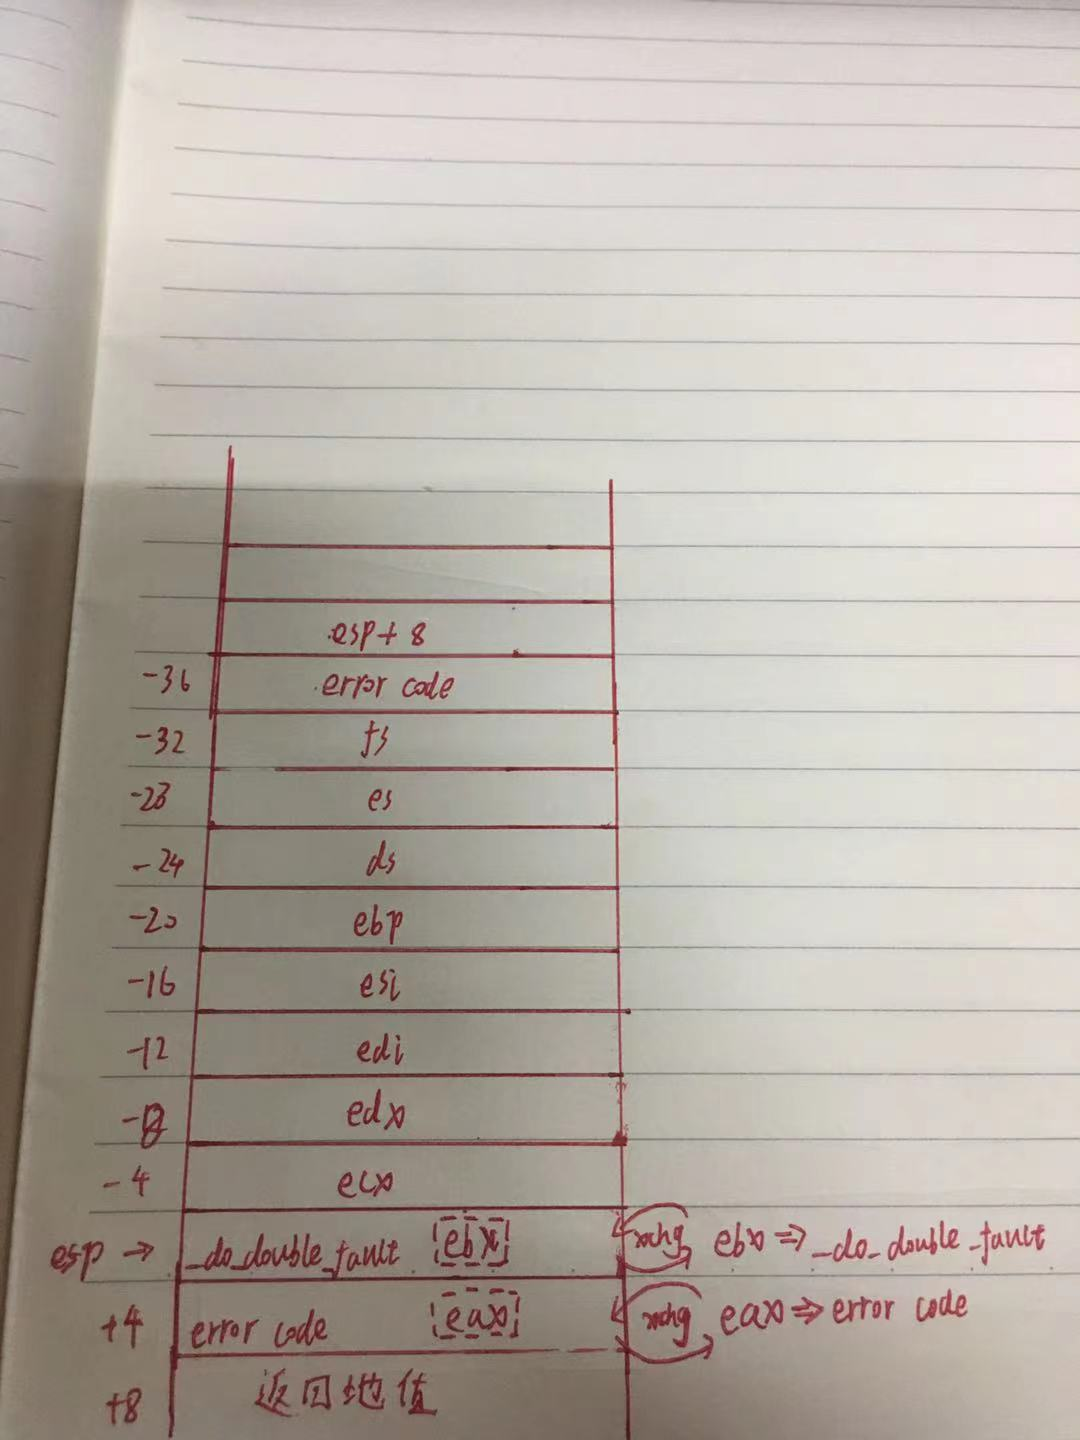 esp + 8
-36 error code
-32 fs
-28 es
-24 ds
-20 ebp
-16 esi
-12 edi
-8 edx
-4 ecx
esp → _do_double_fault ebx xchg ebx ⇒ _do_double_fault
+4 error code eax xchg eax ⇒ error code
+8 返回地值